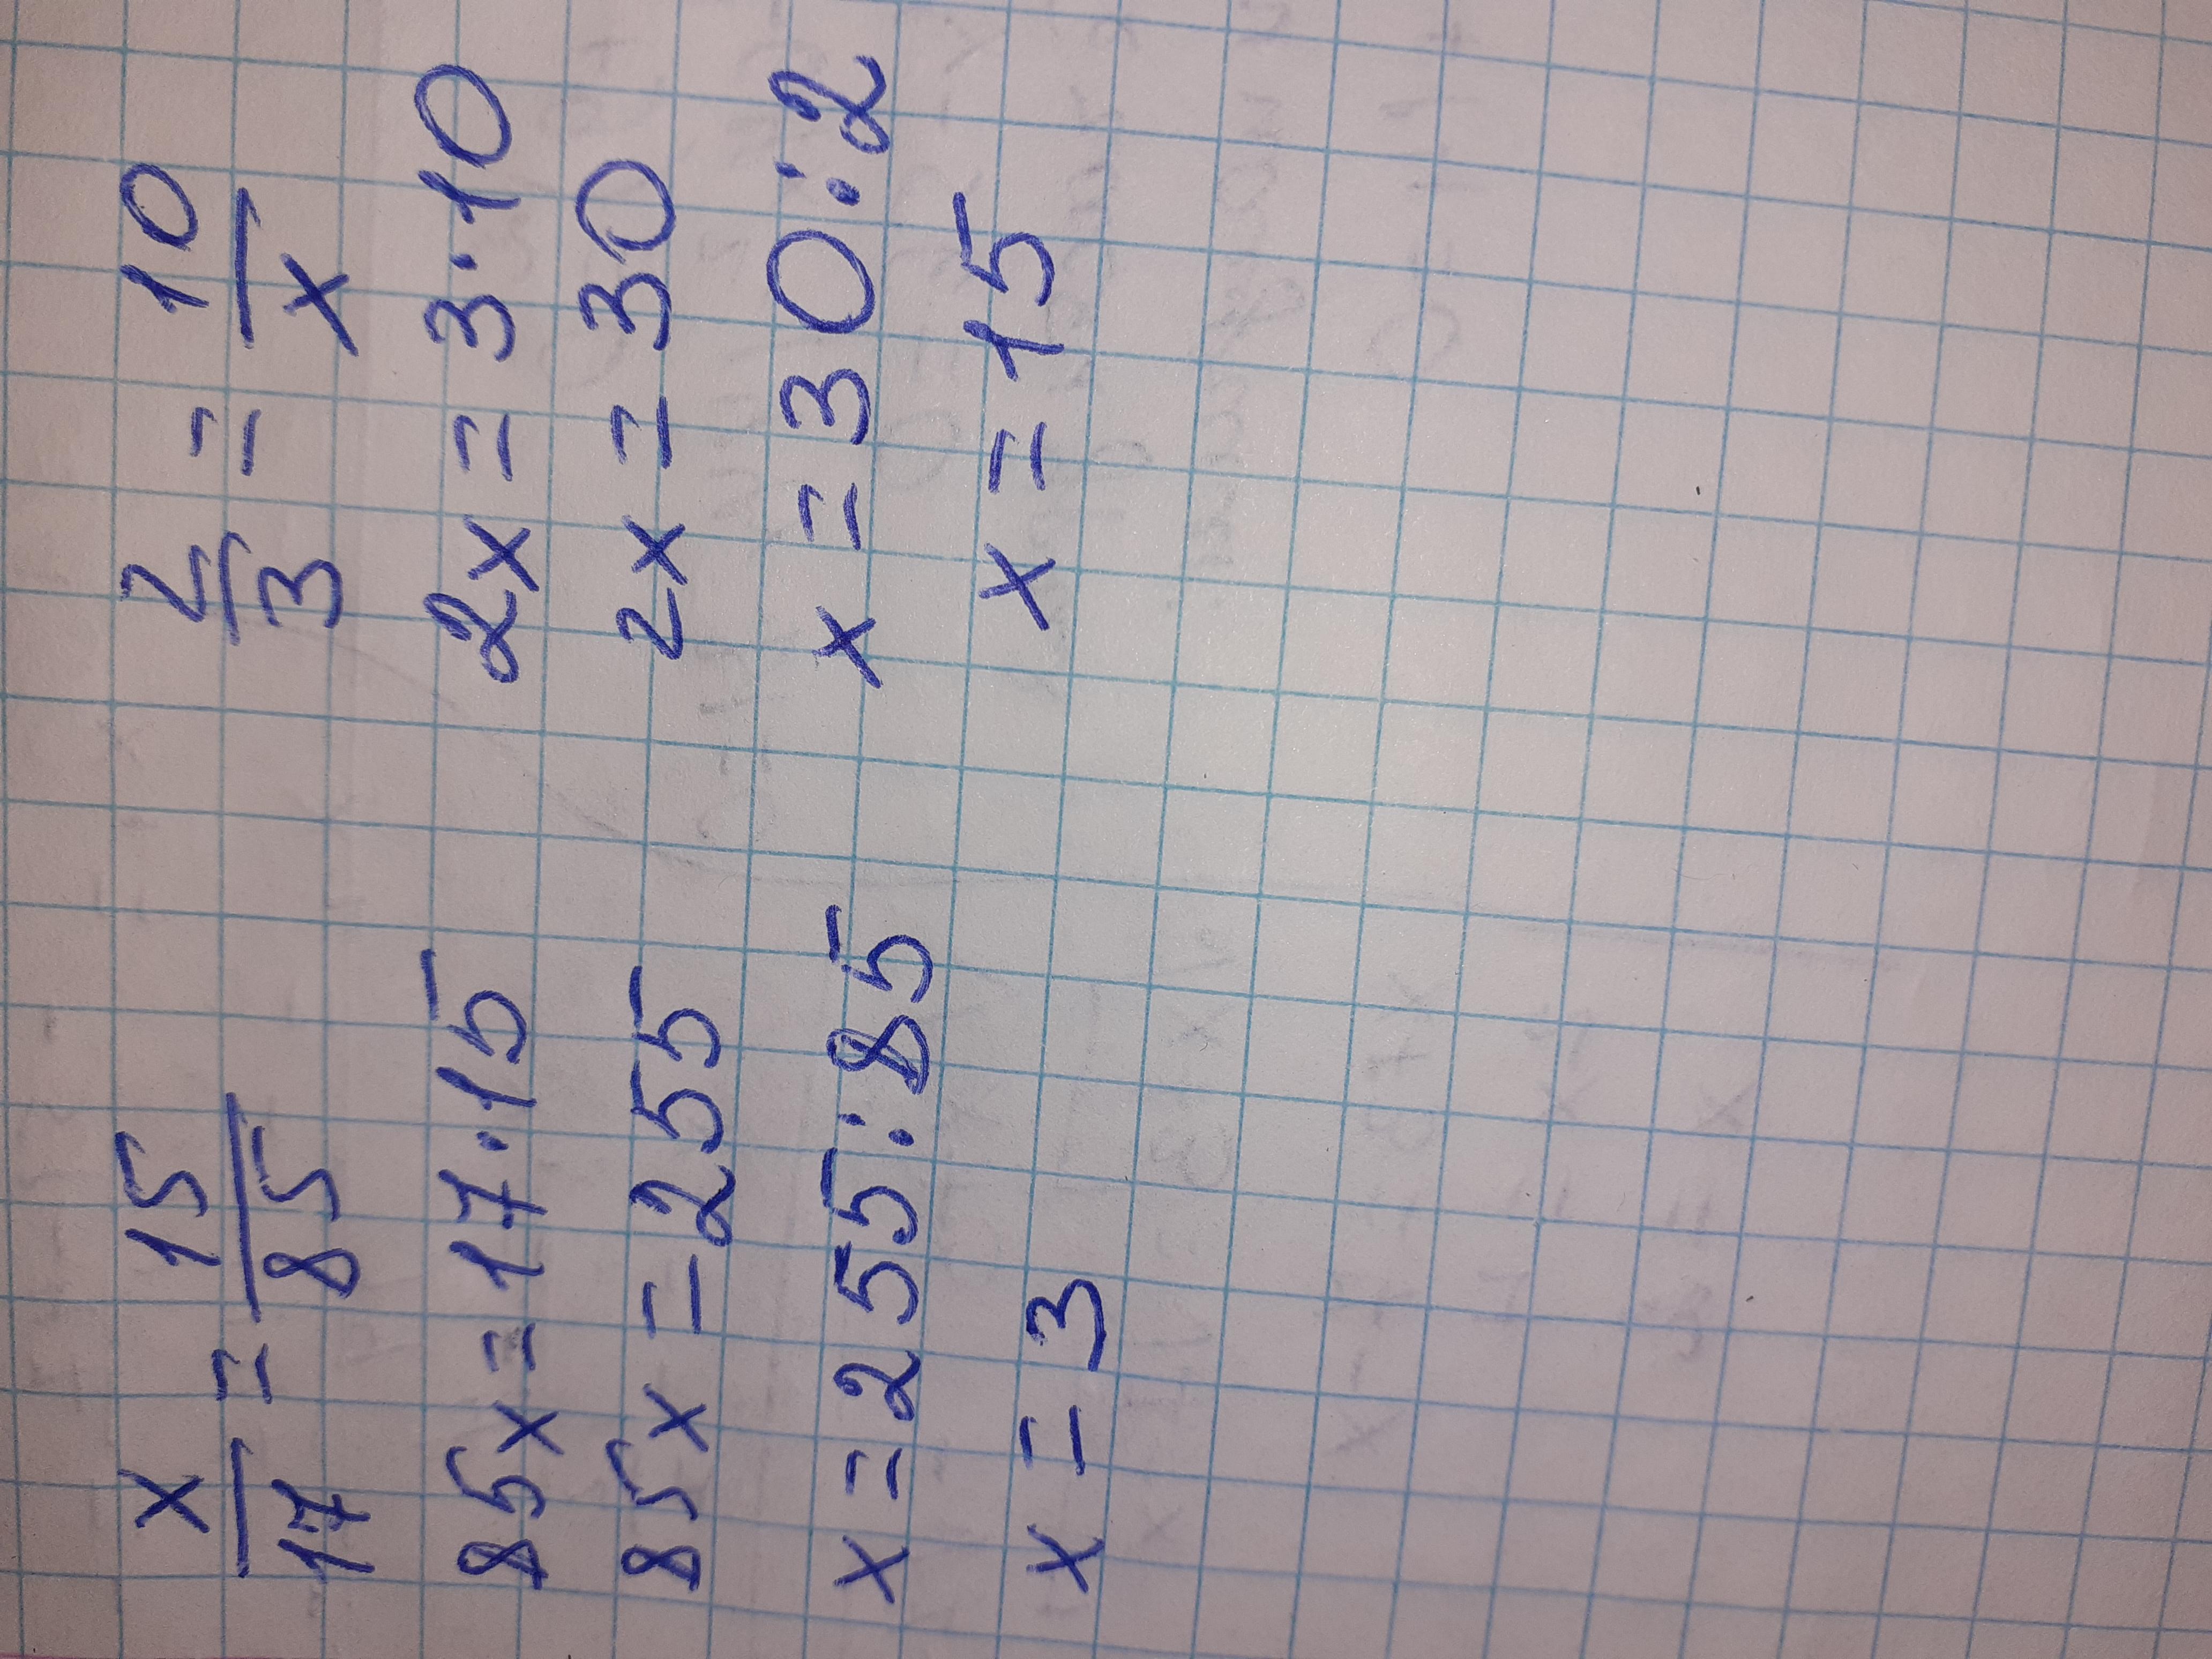 x/17 = 15/85
85x = 17·15
85x = 255
x = 255:85
x = 3
2/3 = 10/x
2x = 3·10
2x = 30
x = 30:2
x = 15